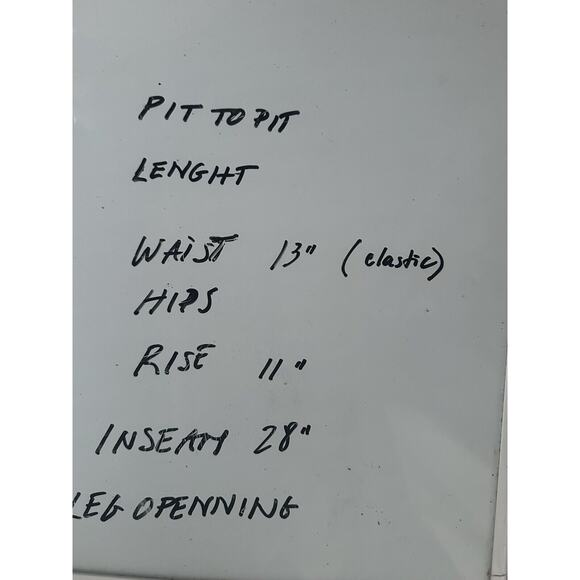 PIT TO PIT
LENGHT
WAIST 13" (elastic)
HIPS
RISE 11"
INSEAM 28"
LEG OPENNING